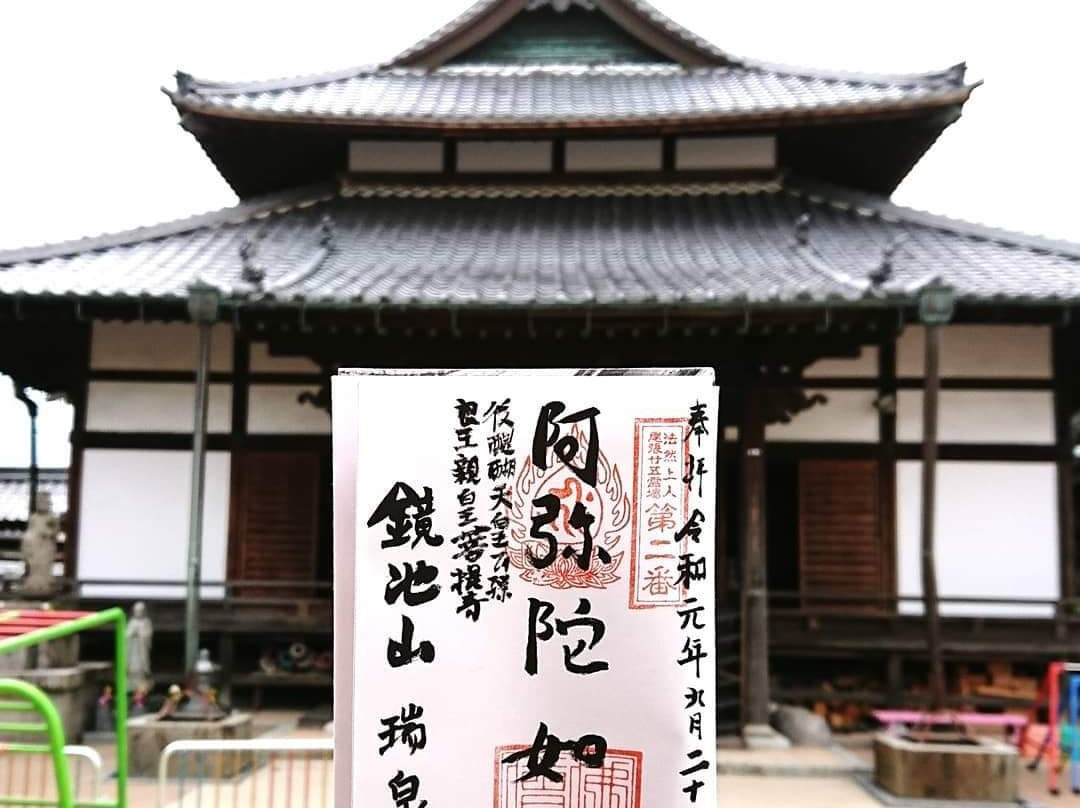 奉拝 令和元年九月二十
法然上人
尾張廿五霊場
第二番
阿弥陀如
後醍醐天皇玄孫
良王親皇菩提寺
鏡池山 瑞泉